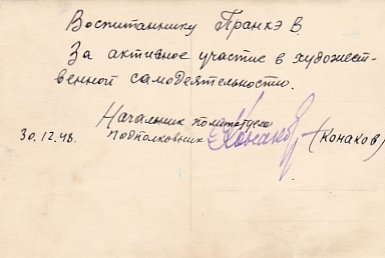 Воспитаннику Пранкэ В.
За активное участие в художест-
венной самодеятельностию.
Начальник политотдела
30.12.48. подполковник Конаков (Конаков)